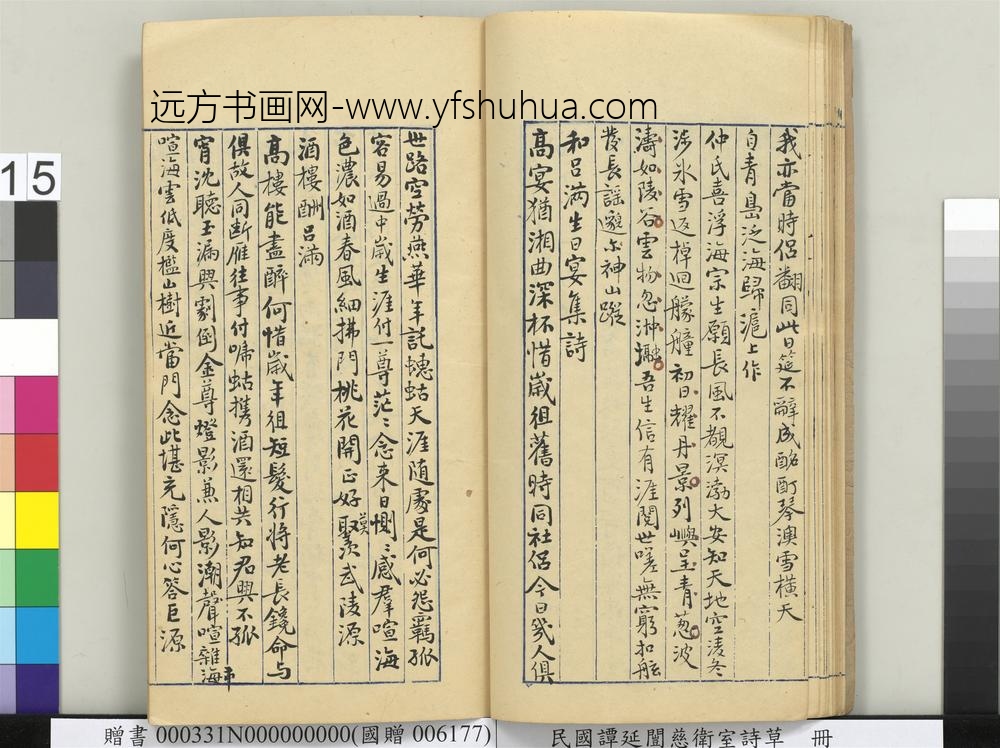 远方书画网-www.yfshuhua.com
我亦當時侶翻同此日筵不辭成酩酊琴澳雪橫天
自青島泛海歸滬上作
仲氏喜浮海宗生願長風不覩溟渤大安知天地空淩冬
涉氷雪返棹迴艨艟初日耀丹景列嶼呈青葱波
濤如陵谷雲物忽沖瀜吾生信有涯閱世嗟無窮扣舷
發長謡邈尒神山蹤
和呂满生日宴集詩
髙宴猶湘曲深杯惜歲徂舊時同社侶今日幾人俱
世路空勞燕華年託蟪蛄天涯随處是何必怨羈孤
容易過中歲生涯付一尊茫〻念来日惻〻感羣喧海
色濃如酒春風細拂門桃花開正好羨武陵源
酒樓酬呂滿
髙樓能盡醉何惜歲年徂短髮行將老長鑱命与
俱故人同断雁往事付啼蛄携酒還相共知君興不孤
宵沈聽玉漏興劇倒金尊燈影兼人影潮聲喧雜海
喧海雲低度檻山樹近當門念此堪充隱何心答巨源
15
贈書 000331N000000000(國贈 006177)
民國譚延闓慈衛室詩草 冊